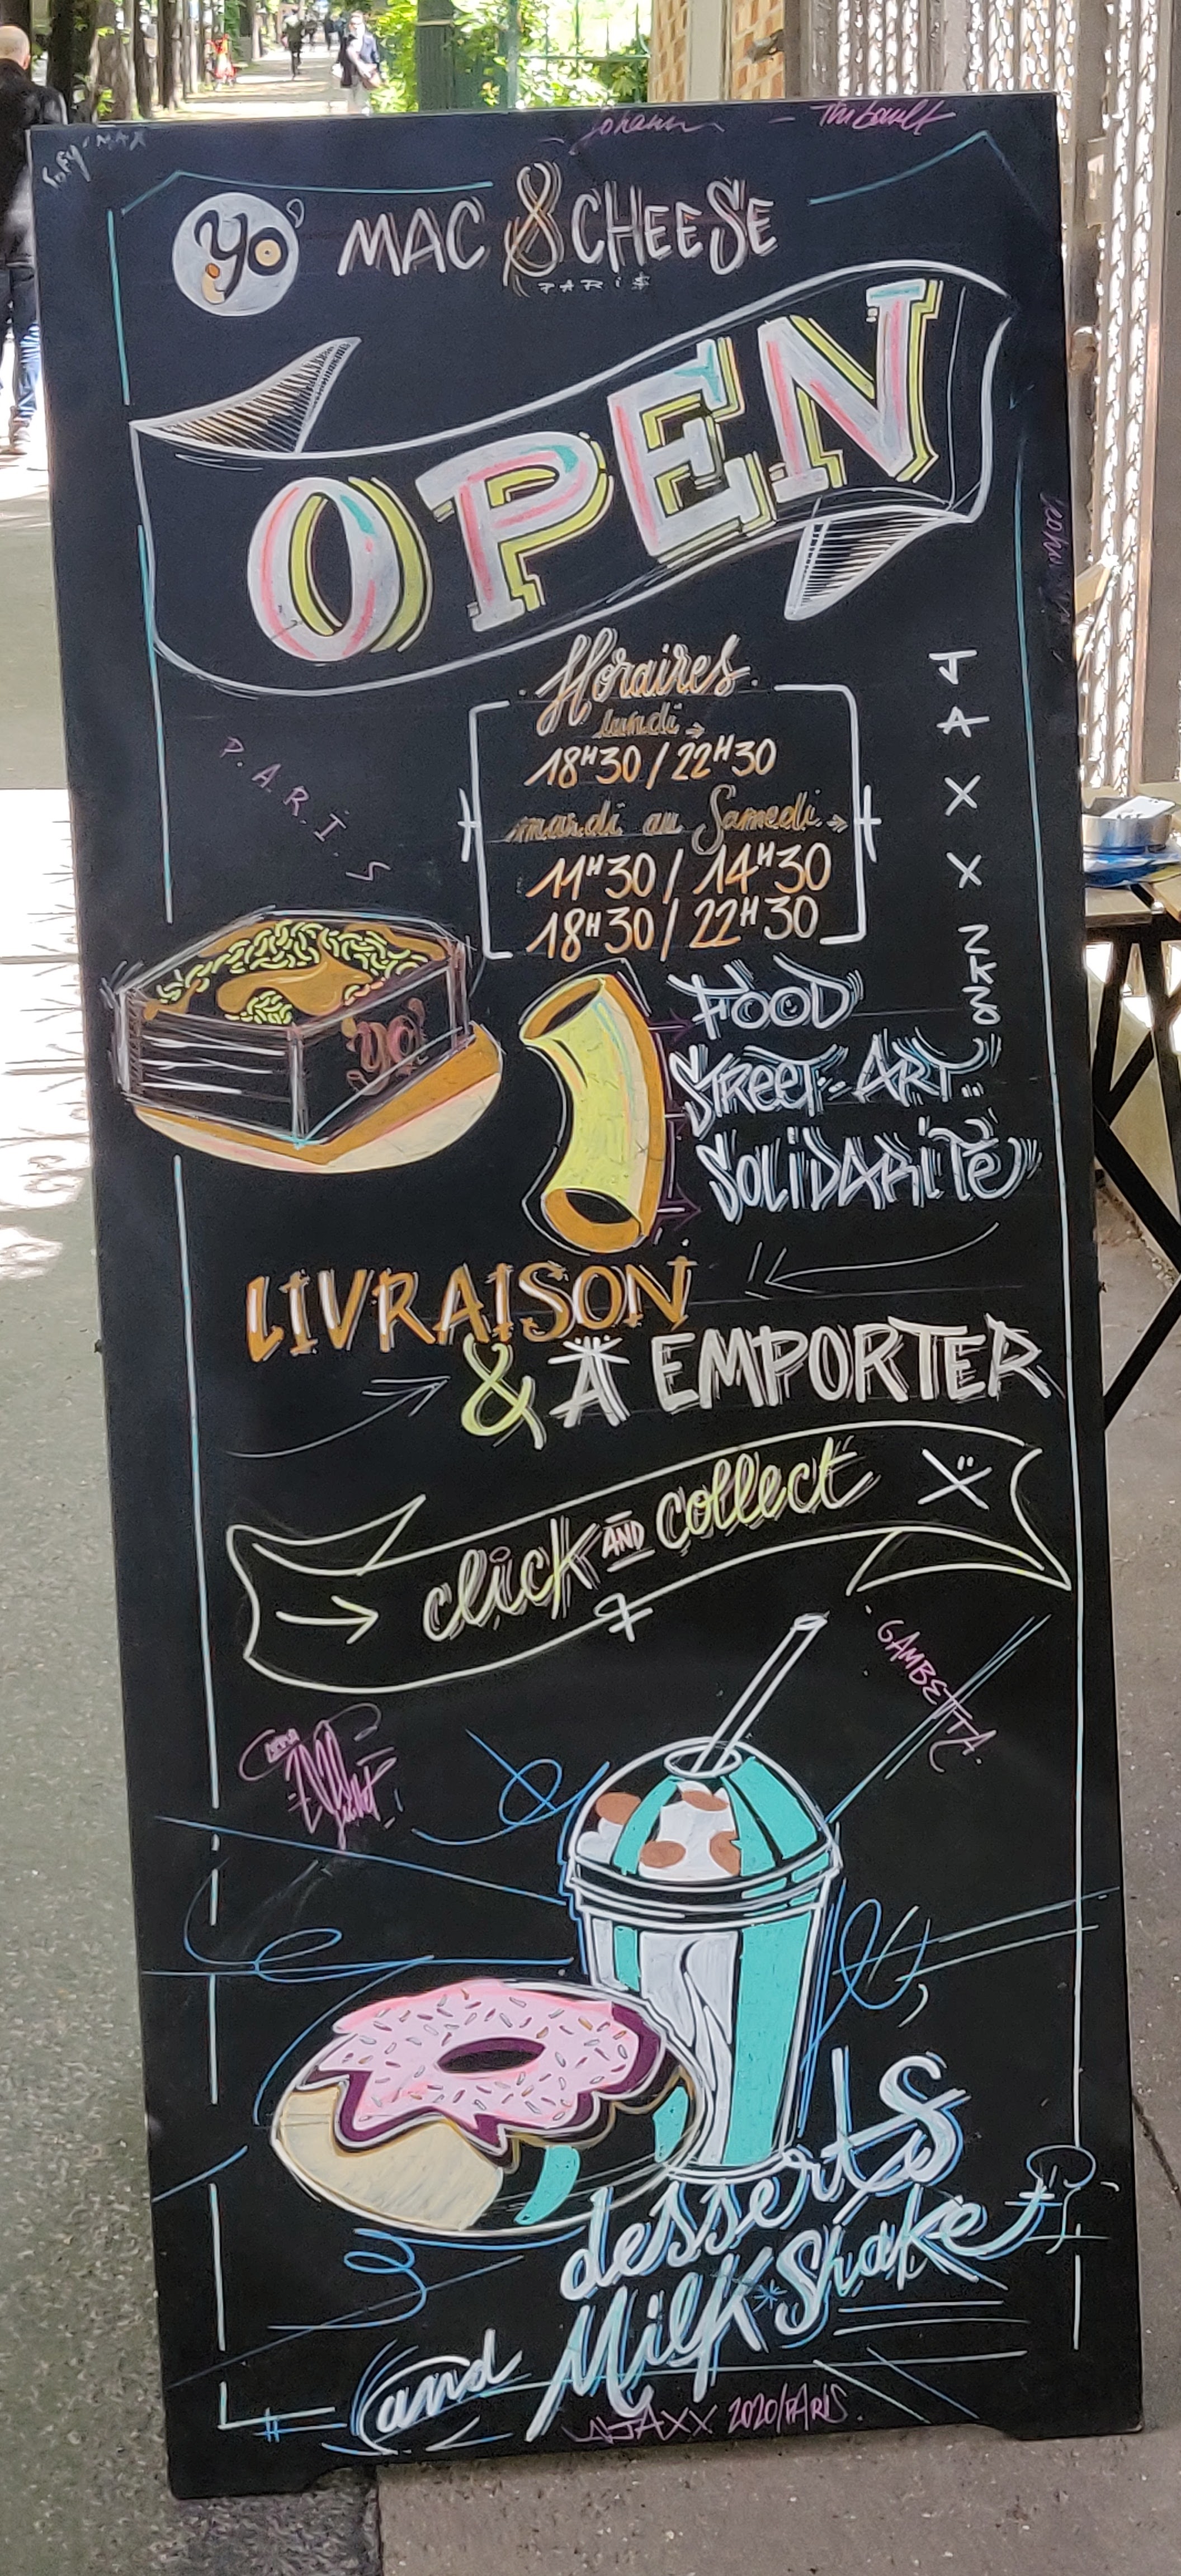 Johann - Thibault
Yo'
MAC & CHEESE
PARIS
OPEN
Horaires
lundi →
18H30 / 22H30
mardi au Samedi →
11H30 / 14H30
18H30 / 22H30
JAXX
P.A.R.I.S
yo'
FOOD
STREET ART
SOLIDARITé
LIVRAISON
& À EMPORTER
→ click AND collect
GAMBETTA.
desserts
and Milk Shake
JAXX 2020/PARIS.